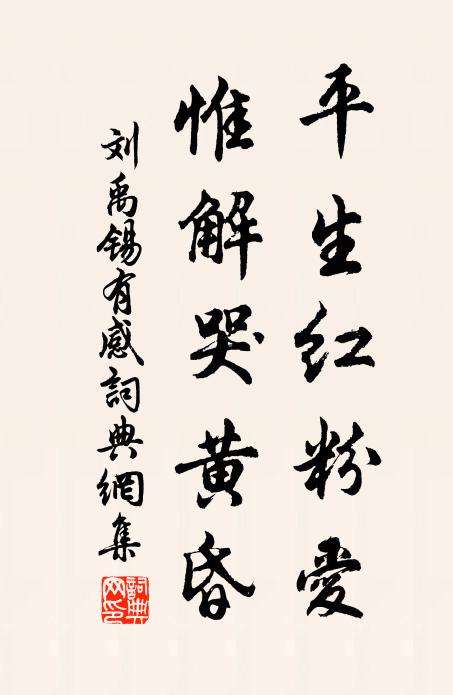 平生红粉爱
惟解哭黄昏
刘禹锡有感词典網集
詞典网印